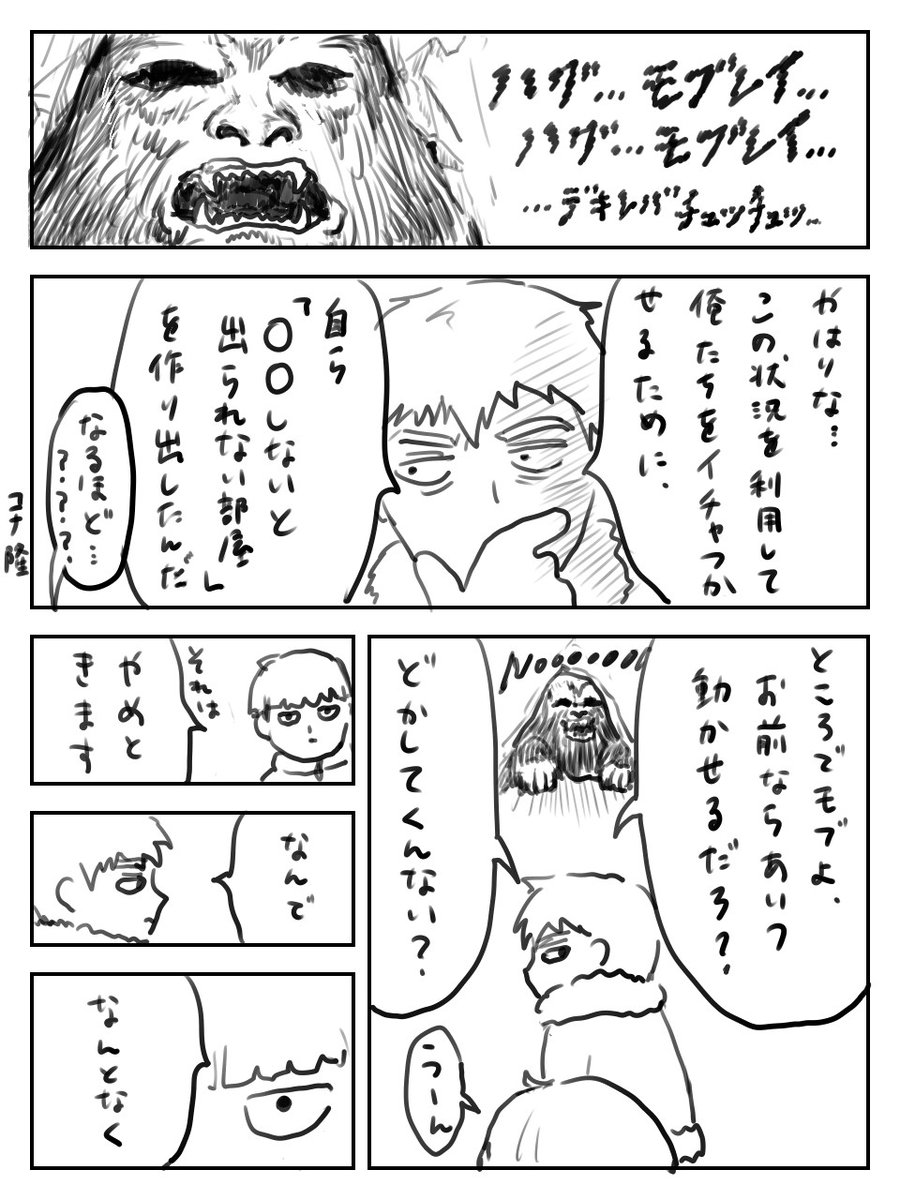 ハグ…モブレイ…
ハグ…モブレイ…
…デキレバチュッチュッ…
やはりな…
この状況を利用して
俺たちをイチャつか
せるために、
自ら
「〇〇しないと
出られない部屋」
を作り出したんだ
なるほど…
？？？？
コナ隆
ところでモブよ、
お前ならあいつ
動かせるだろ？
どかしてくんない？
うーん
それは
やめと
きます
なんで
なんとなく